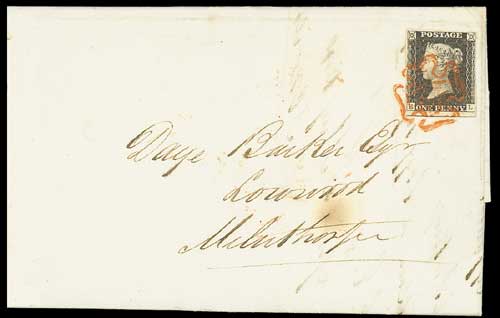 POSTAGE
ONE PENNY
Daye Barker Esqr
Lowwood
Milnthorpe